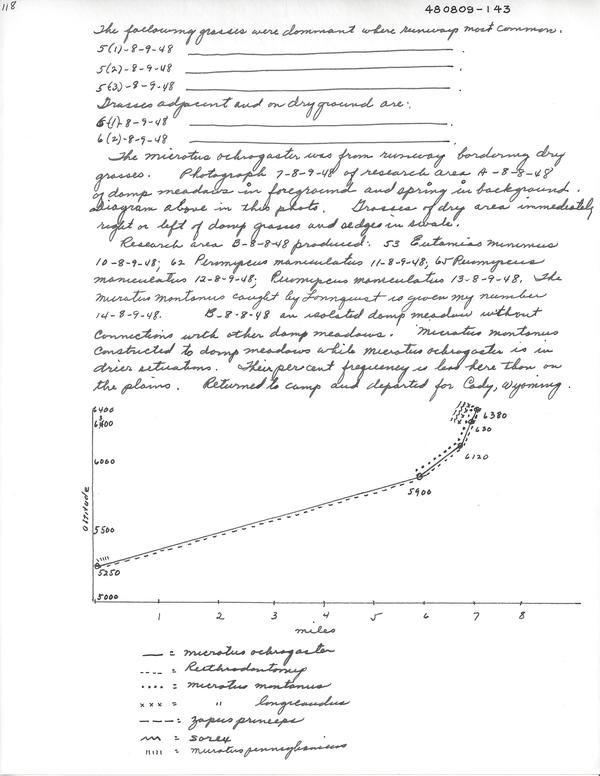 118
480809-143
The following grasses were dominant where runways most common.
5(1)-8-9-48 .
5(2)-8-9-48 .
5(3)-8-9-48 .
Grasses adjacent and on dry ground are:
6(1)-8-9-48 .
6(2)-8-9-48 .
The microtus ochrogaster was from runway bordering dry
grasses. Photograph 7-8-9-48 of research area A-8-8-48
of damp meadows in foreground and spring in background.
Diagram above in this photo. Grasses of dry area immediately
right or left of damp grasses and sedges in swale.
Research area B-8-8-48 produced: 53 Eutamias minimus
10-8-9-48; 62 Peromyscus maniculatus 11-8-9-48; 65 Peromyscus
maniculatus 12-8-9-48; Peromyscus maniculatus 13-8-9-48. The
microtus montanus caught by Lonnquist is given my number
14-8-9-48. B-8-8-48 an isolated damp meadow without
connections with other damp meadows. Microtus montanus
constructed to damp meadows while microtus ochrogaster is in
drier situations. Their per cent frequency is less here than on
the plains. Returned to camp and departed for Cody, Wyoming.
6400
6300
6000
5500
5250
5000
altitude
5900
6120
630
6380
1 2 3 4 5 6 7 8
miles
— = microtus ochrogaster
---- = Reithrodontomys
.... = microtus montanus
x x x = " longicaudus
——— = zapus princeps
= sorex
ıııı = microtus pennsylvanicus